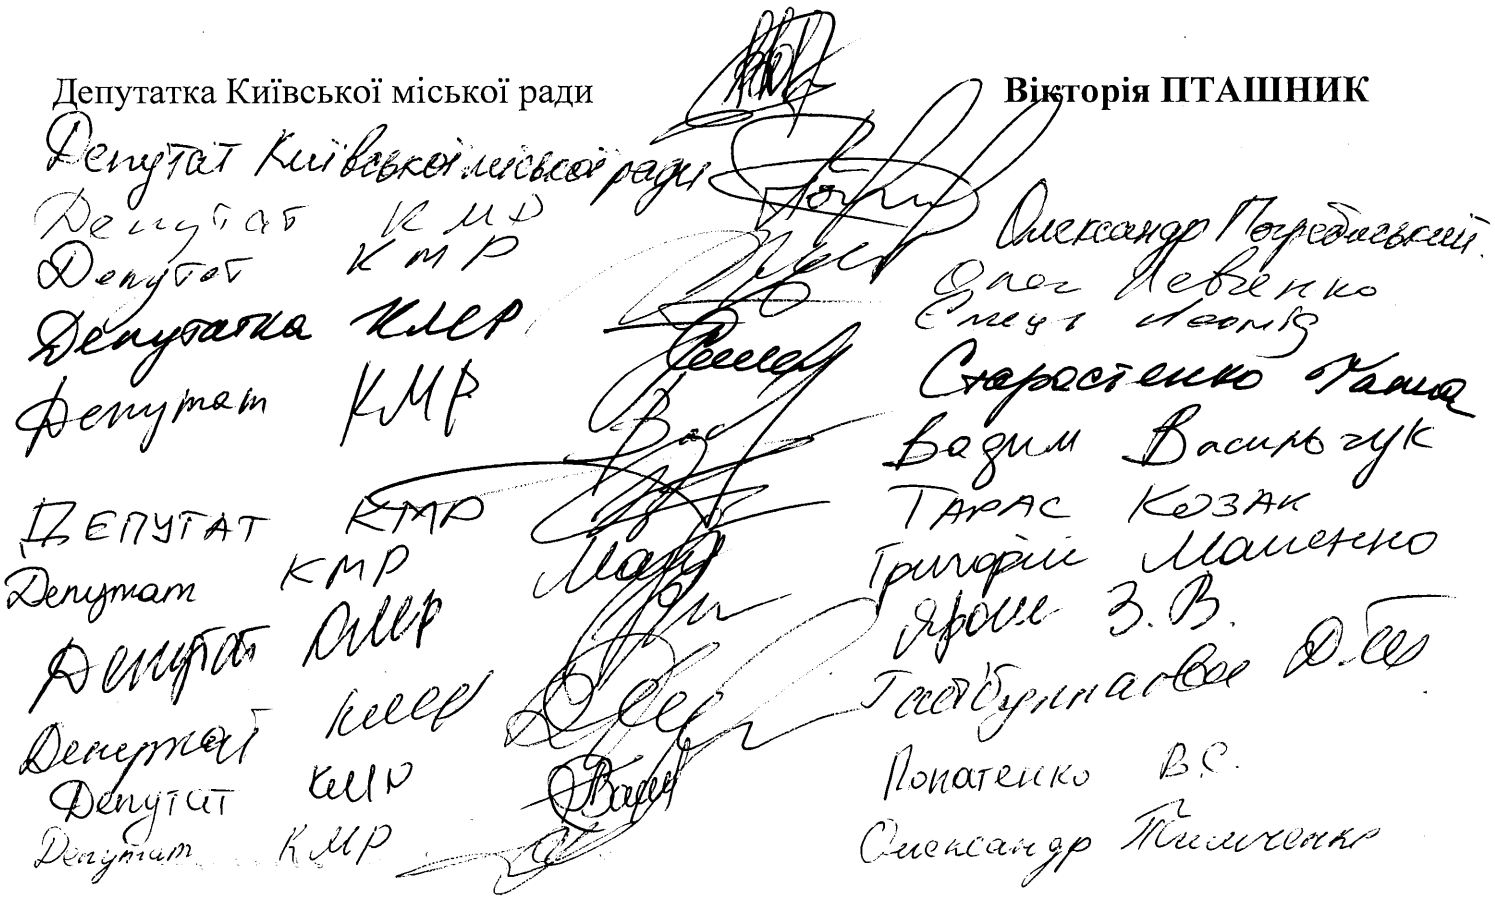 Депутатка Київської міської ради Вікторія ПТАШНИК
Депутат Київської міської ради Олександр Погребиський
Депутат КМР Олег Левченко
Депутат КМР Ємець Леонід
Депутатка КМР Старостенко Ганна
Депутат КМР Вадим Васильчук
ДЕПУТАТ КМР ТАРАС КОЗАК
Депутат КМР Григорій Маленко
Депутат КМР Ярош З. В.
Депутат КМР
Депутат КМР Лопатенко В.С.
Депутат КМР Олександр Тимченко